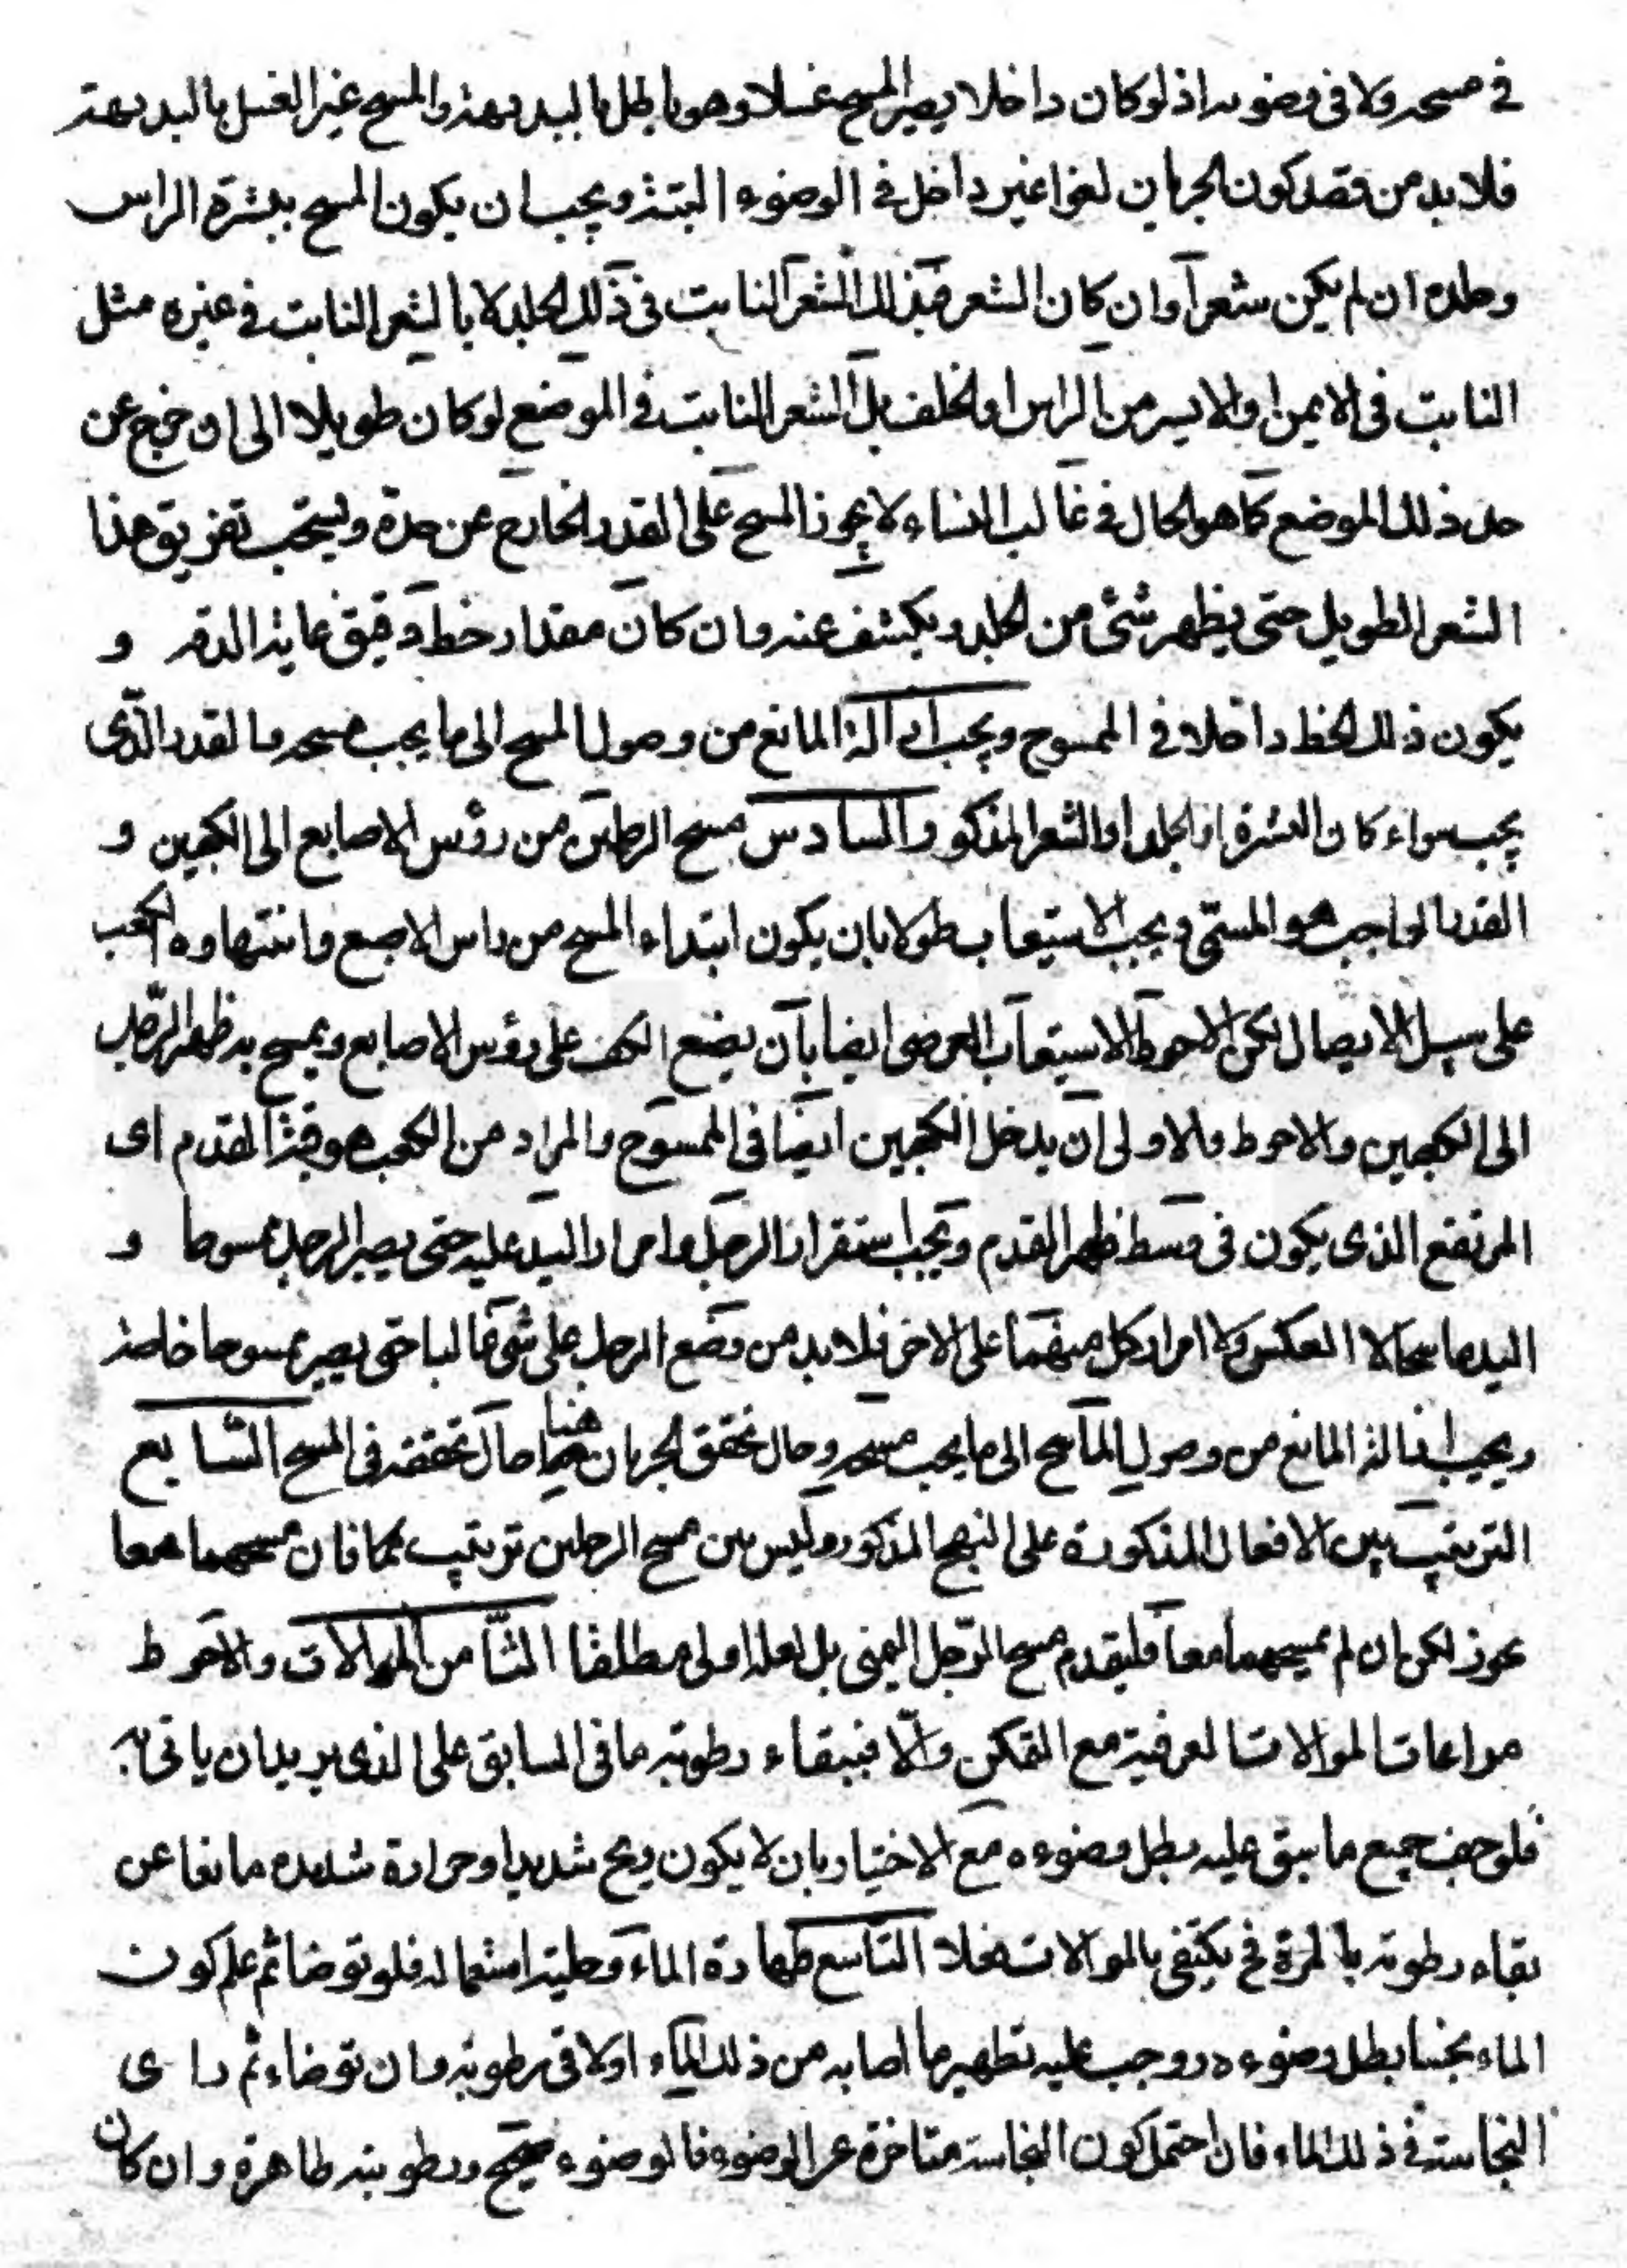 في مسحه ولا في وضوءه اذ لو كان داخلا يصير المسح غسلا وهو باطل بالبديهة والمسح غير الغسل بالبديهة
فلا بد من قصد كون الجريان لغوا غير داخل في الوضوء البتة ويجب ان يكون المسح ببشرة الراس
وجلده ان لم يكن شعرا وان كان الشعر فبذلك الشعر النابت في ذلك الجلد لا بالشعر النابت في غيره مثل
النابت في الايمن او الايسر من الراس او الخلف بل الشعر النابت في الموضع لو كان طويلا الى ان خرج عن
حد ذلك الموضع كما هو الحال في غالب النساء لا يجوز المسح على القدر الخارج عن حده ويستحب تفريق هذا
الشعر الطويل حتى يظهر شئ من الجلد ويكشف عنه وان كان مقدار خط دقيق غاية الدقه و
يكون ذلك الخط داخلا في الممسوح ويجب ازالة المانع من وصول المسح الى ما يجب مسحه والقدر الذى
يجب سواء كان البشرة او الجلد او الشعر المذكور والسادس مسح الرجلين من رؤس الاصابع الى الكعبين و
القدر الواجب هو المسمى ويجب الاستيعاب طولا بان يكون ابتداء المسح من راس الاصبع وانتهاوه الكعب
على سبيل الايصال لكن الاحوط الاستيعاب العرضى ايضا بان يضع الكف على رؤس الاصابع ويمسح به ظهر الرّجل
الى الكعبين والاحوط والاولى ان يدخل الكعبين ايضا في الممسوح والمراد من الكعب هو قبة القدم اى
المرتفع الذى يكون في وسط ظهر القدم ويجب استقرار الرجل وامرار اليد عليه حتى يصير الرجل ممسوحا و
اليد ماسحا لا العكس ولا امرار كل منهما على الاخر فلا بد من وضع الرجل على شئ غالبا حتى يصير ممسوحا خاصة
ويجب ازالة المانع من وصول الماسح الى ما يجب مسحه وحال تحقق الجريان هنا حال تحققه في المسح السّابع
الترتيب بين الافعال المذكورة على النهج المذكور وليس بين مسح الرجلين ترتيب كما فان مسحهما معا
يجوز لكن ان لم يمسحهما معا فليقدم مسح الرّجل اليمنى بل لعله اولى مطلقا الثّامن الموالات والاحوط
مراعات الموالات العرفية مع التمكن والّا فببقاء رطوبة ما في السابق على الذى يريد ان ياتى به
فلو جف جميع ما سبق عليه بطل وضوءه مع الاختيار بان لا يكون ريح شديد او حرارة شديده مانعا عن
بقاء رطوبته بالمرة فح يكتفى بالموالات فعلا التّاسع طهارة الماء وحلية استعماله فلو توضا ثم علم كون
الماء نجسا بطل وضوءه ووجب عليه تطهير ما اصابه من ذلك الماء او لاقى رطوبته وان توضاء ثم راى
النجاسة في ذلك الماء فان احتمل كون النجاسة متاخرة عن الوضوء فالوضوء صحيح ورطوبته طاهرة وان كان